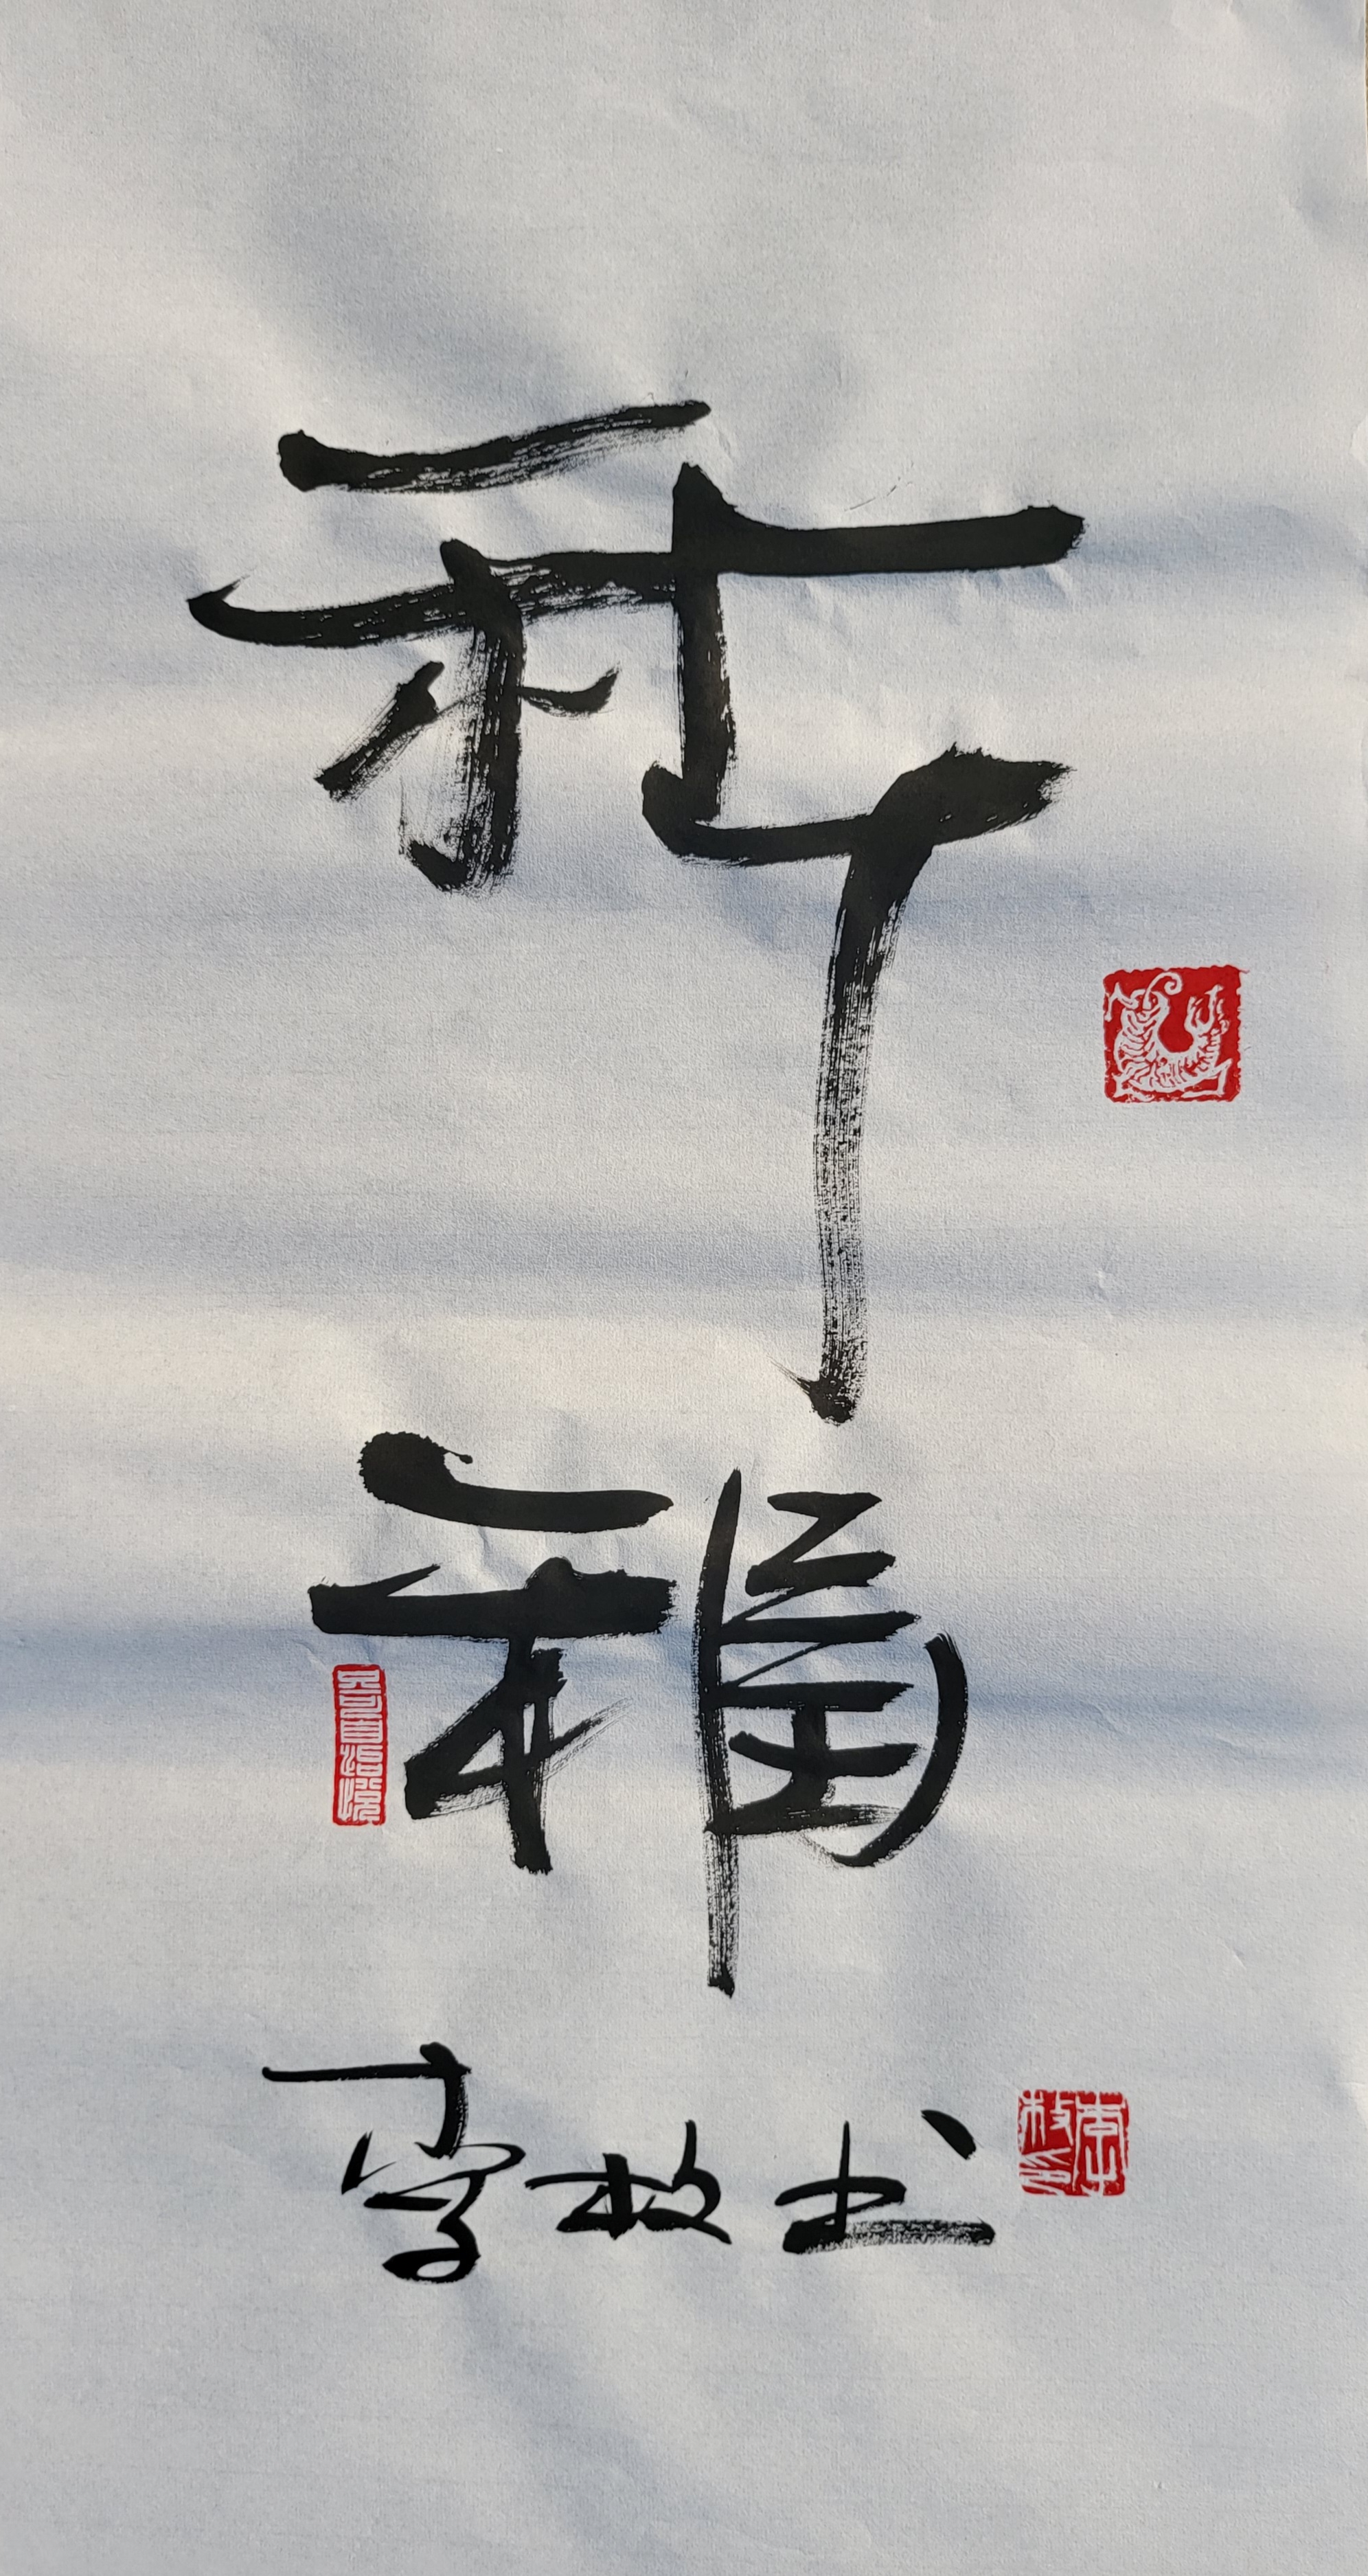 祈福
李枚书
李枚印